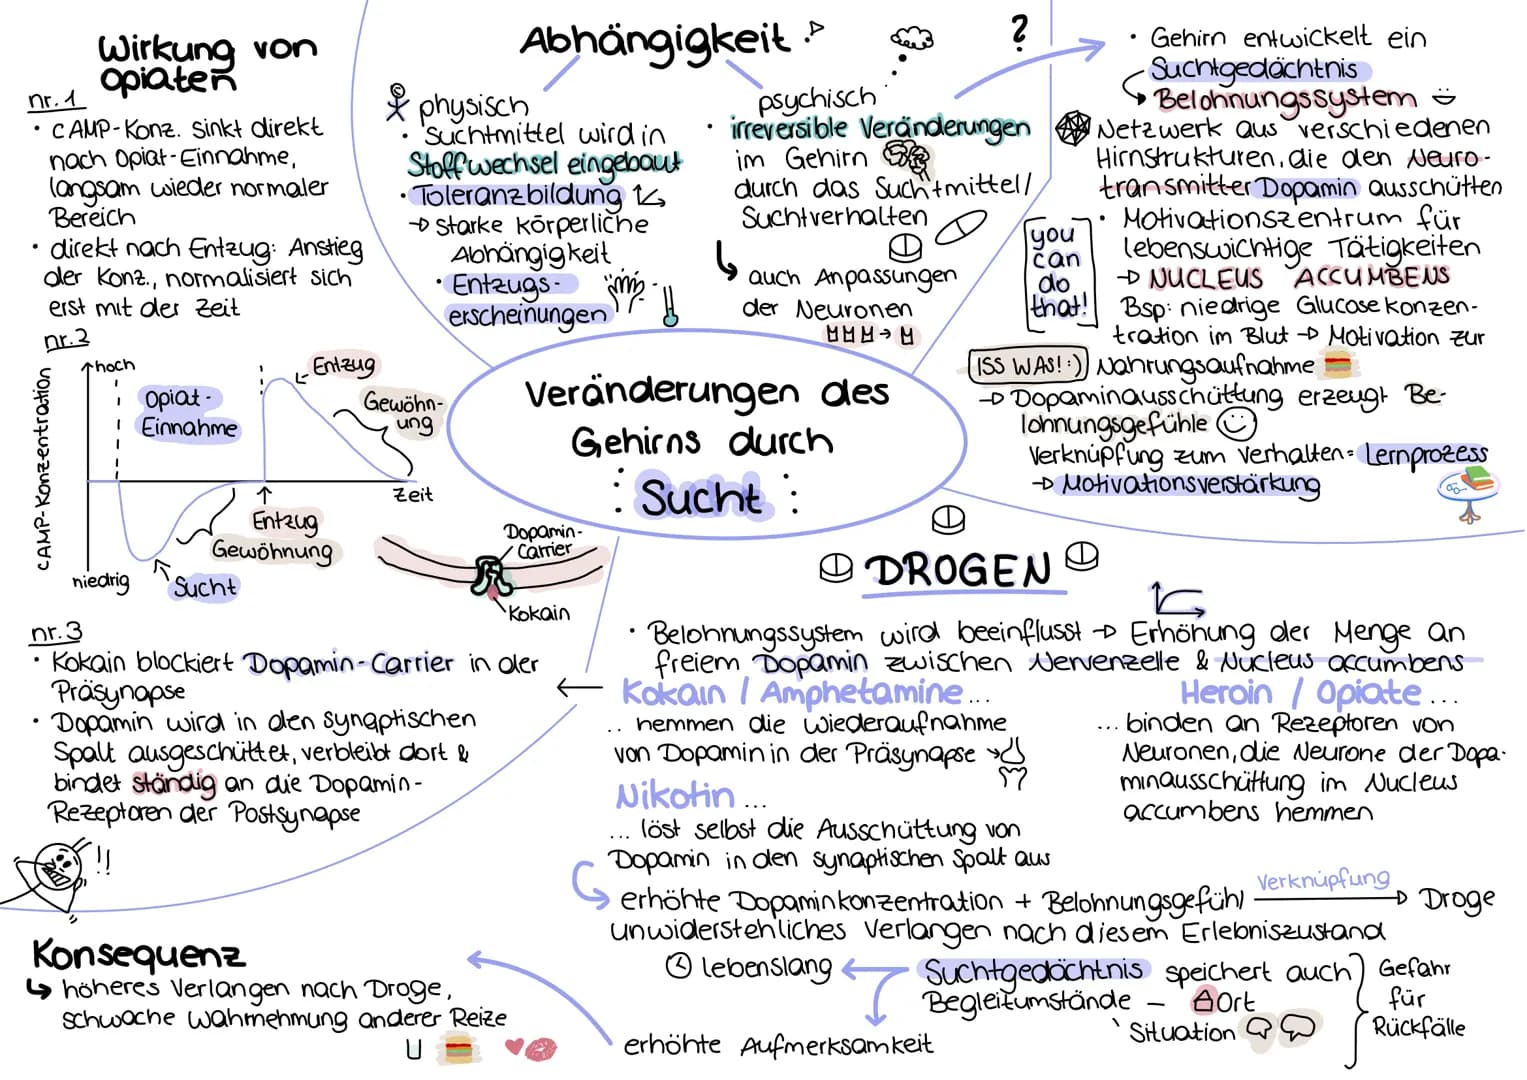 Wirkung von
opiaten
nr. 1
• cAMP-Konz. sinkt direkt
nach Opiat-Einnahme,
langsam wieder normaler
Bereich
• direkt nach Entzug: Anstieg
der Konz., normalisiert sich
erst mit der Zeit
nr. 2
cAMP-Konzentration
hoch
niedrig
Opiat-
Einnahme
Entzug
Gewöhn-
ung
Zeit
Entzug
Gewöhnung
Sucht
Dopamin-
Carrier
Kokain
nr. 3
• Kokain blockiert Dopamin-Carrier in der
Präsynapse
• Dopamin wird in den synaptischen
Spalt ausgeschüttet, verbleibt dort &
bindet ständig an die Dopamin-
Rezeptoren der Postsynapse
!!
Konsequenz
↳ höheres Verlangen nach Droge,
schwache Wahrnehmung anderer Reize
Abhängigkeit
?
physisch
• Suchtmittel wird in
Stoffwechsel eingebaut
• Toleranzbildung
→ starke körperliche
Abhängigkeit
• Entzugs-
erscheinungen
psychisch
• irreversible Veränderungen
im Gehirn
durch das Suchtmittel/
Suchtverhalten
↳ auch Anpassungen
der Neuronen
Veränderungen des
Gehirns durch
: Sucht :
• Gehirn entwickelt ein
Suchtgedächtnis
↳ Belohnungssystem
Netzwerk aus verschiedenen
Hirnstrukturen, die den Neuro-
transmitter Dopamin ausschütten
• Motivationszentrum für
lebenswichtige Tätigkeiten
→ NUCLEUS ACCUMBENS
you
can
do
that!
Bsp: niedrige Glucosekonzen-
tration im Blut → Motivation zur
ISS WAS! :) Nahrungsaufnahme
→ Dopaminausschüttung erzeugt Be-
lohnungsgefühle
Verknüpfung zum Verhalten = Lernprozess
→ Motivationsverstärkung
DROGEN
• Belohnungssystem wird beeinflusst → Erhöhung der Menge an
freiem Dopamin zwischen Nervenzelle & Nucleus accumbens
Kokain / Amphetamine ...
... hemmen die Wiederaufnahme
von Dopamin in der Präsynapse
Heroin / Opiate ...
... binden an Rezeptoren von
Neuronen, die Neurone der Dopa-
minausschüttung im Nucleus
accumbens hemmen
Nikotin ...
... löst selbst die Ausschüttung von
Dopamin in den synaptischen Spalt aus
erhöhte Dopaminkonzentration + Belohnungsgefühl Verknüpfung → Droge
unwiderstehliches Verlangen nach diesem Erlebniszustand
lebenslang ← Suchtgedächtnis speichert auch
Begleitumstände - Ort
Situation
Gefahr
für
Rückfälle
erhöhte Aufmerksamkeit